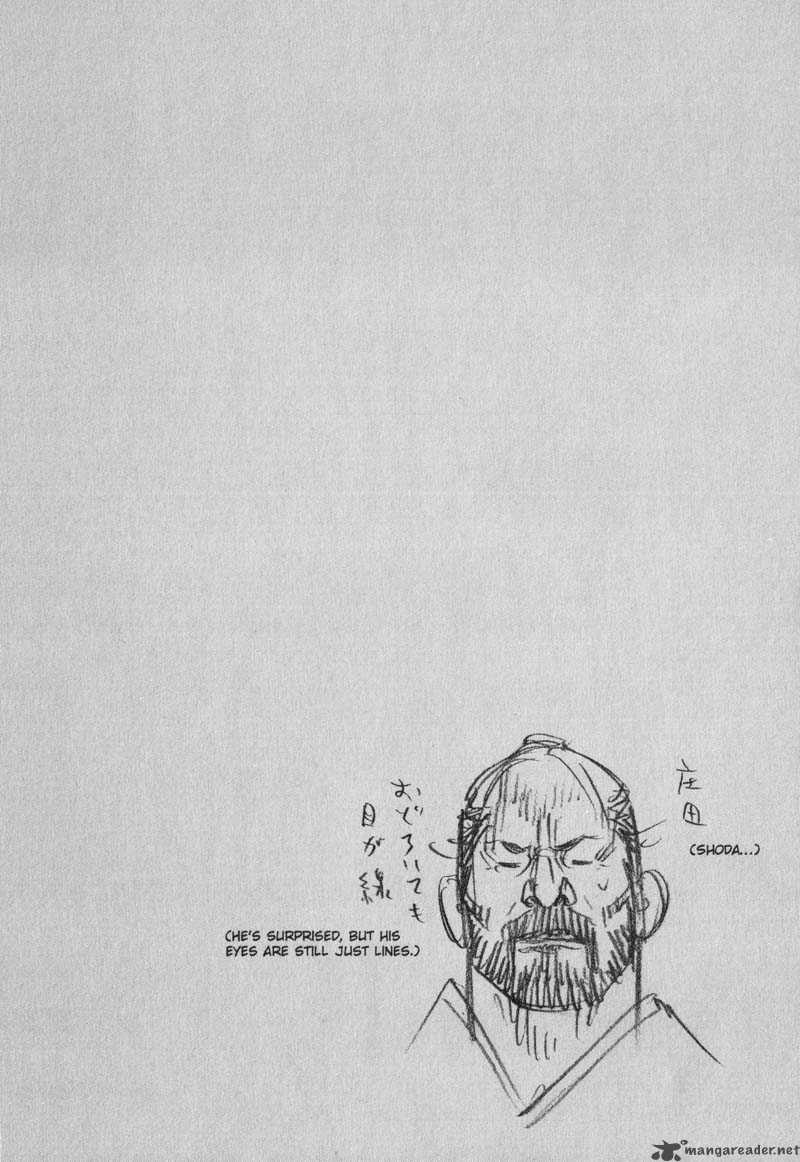 庄田
(SHODA...)
おどろいても
目が線
(HE'S SURPRISED, BUT HIS
EYES ARE STILL JUST LINES.)
mangareader.net